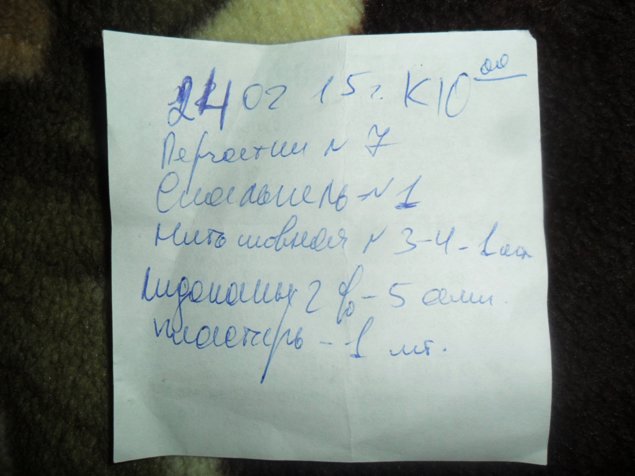 24 02 15 г. к 10 00
Перчатки N 7
Скальпель N 1
Нить шовная N 3-4 - 1
Лидокаин 2 % - 5 амп.
пластырь - 1 шт.